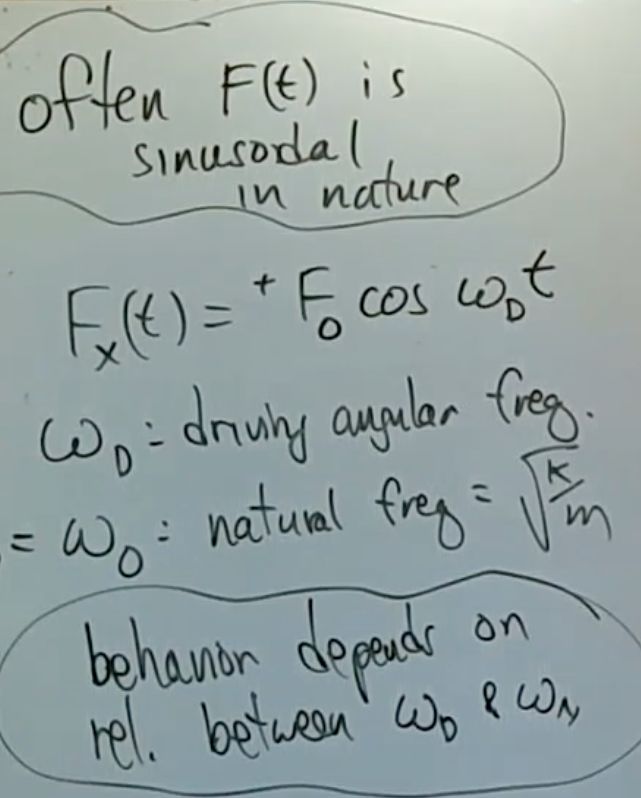 often F(t) is
sinusodal
in nature
Fₓ(t) = ⁺F₀ cos ω_D t
ω_D : driving angular freq.
= ω₀ : natural freq = √k/m
behavior depends on
rel. between ω_D & ω_N